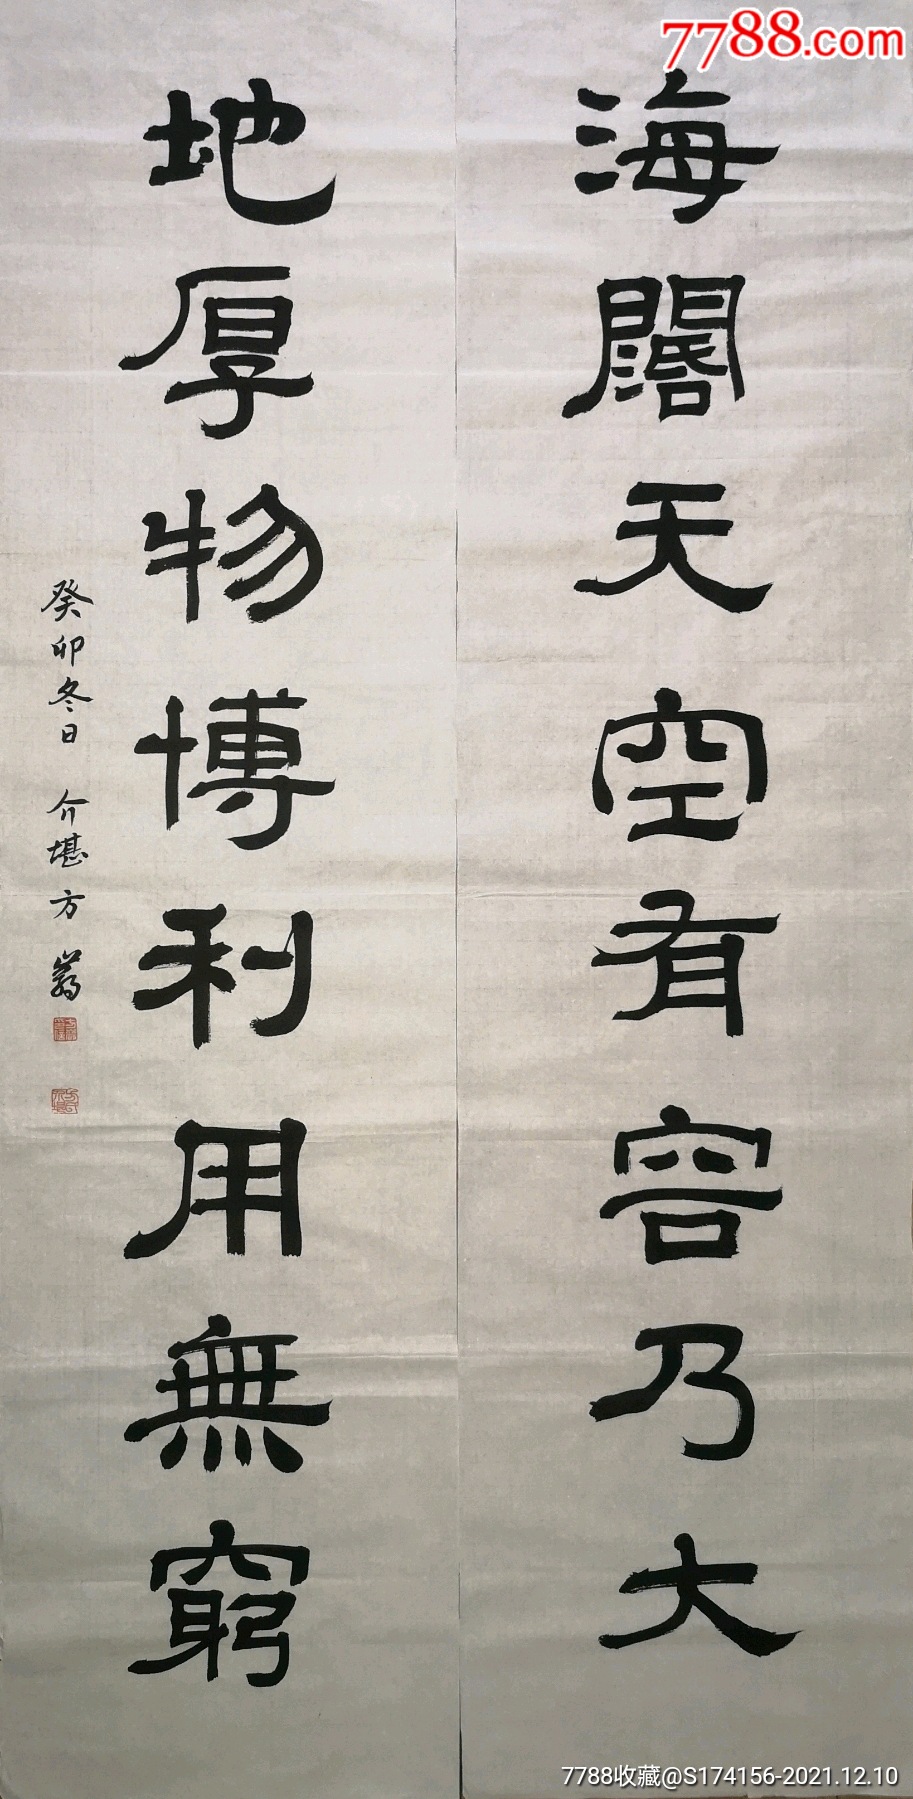 7788.com
海闊天空有容乃大
地厚物博利用無窮
癸卯冬日 介堪方
7788收藏@S174156-2021.12.10